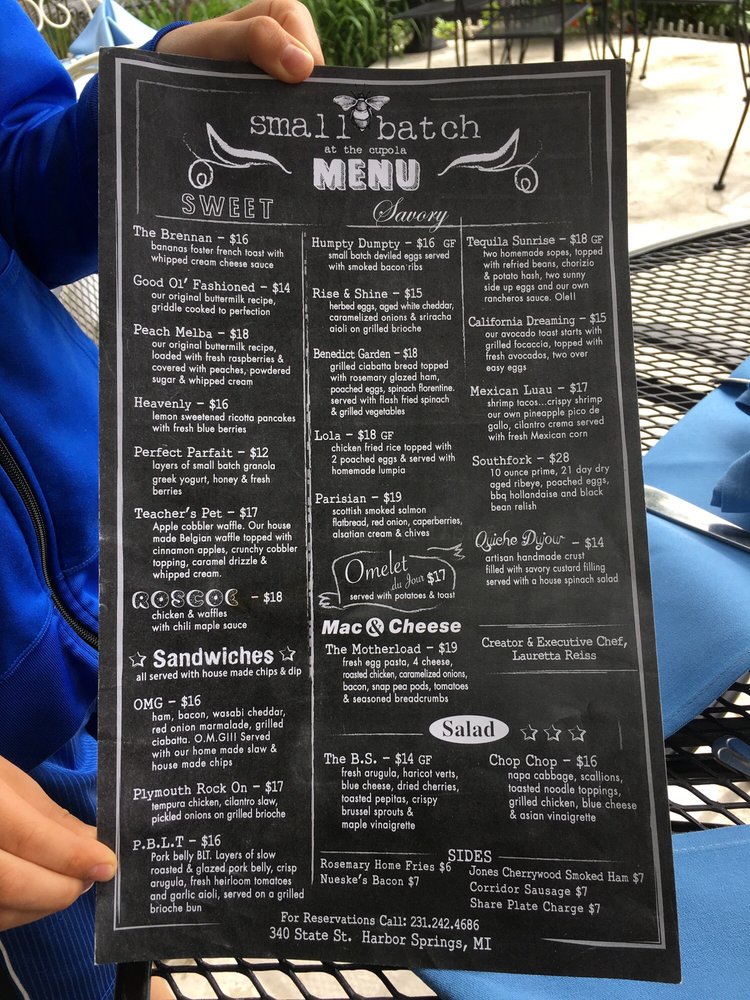 small batch
at the cupola
MENU
SWEET
The Brennan - $16
bananas foster french toast with
whipped cream cheese sauce
Good Ol' Fashioned - $14
our original buttermilk recipe,
griddle cooked to perfection
Peach Melba - $18
our original buttermilk recipe,
loaded with fresh raspberries &
covered with peaches, powdered
sugar & whipped cream
Heavenly - $16
lemon sweetened ricotta pancakes
with fresh blue berries
Perfect Parfait - $12
layers of small batch granola
greek yogurt, honey & fresh
berries
Teacher's Pet - $17
Apple cobbler waffle. Our house
made Belgian waffle topped with
cinnamon apples, crunchy cobbler
topping, caramel drizzle &
whipped cream.
ROSCOE - $18
chicken & waffles
with chili maple sauce
Sandwiches
all served with house made chips & dip
OMG - $16
ham, bacon, wasabi cheddar,
red onion marmalade, grilled
ciabatta. O.M.G!!! Served
with our home made slaw &
house made chips
Plymouth Rock On - $17
tempura chicken, cilantro slaw,
pickled onions on grilled brioche
P.B.L.T - $16
Pork belly BLT. Layers of slow
roasted & glazed pork belly, crisp
arugula, fresh heirloom tomatoes
and garlic aioli, served on a grilled
brioche bun
Savory
Humpty Dumpty - $16 GF
small batch deviled eggs served
with smoked bacon ribs
Rise & Shine - $15
herbed eggs, aged white cheddar,
caramelized onions & sriracha
aioli on grilled brioche
Benedict Garden - $18
grilled ciabatta bread topped
with rosemary glazed ham,
poached eggs, spinach florentine.
served with flash fried spinach
& grilled vegetables
Lola - $18 GF
chicken fried rice topped with
2 poached eggs & served with
homemade lumpia
Parisian - $19
scottish smoked salmon
flatbread, red onion, caperberries,
alsatian cream & chives
Omelet
du Jour $17
served with potatoes & toast
Mac & Cheese
The Motherload - $19
fresh egg pasta, 4 cheese,
roasted chicken, caramelized onions,
bacon, snap pea pods, tomatoes
& seasoned breadcrumbs
Tequila Sunrise - $18 GF
two homemade sopes, topped
with refried beans, chorizio
& potato hash, two sunny
side up eggs and our own
rancheros sauce. Ole!!
California Dreaming - $15
our avocado toast starts with
grilled focaccia, topped with
fresh avocados, two over
easy eggs
Mexican Luau - $17
shrimp tacos...crispy shrimp
our own pineapple pico de
gallo, cilantro crema served
with fresh Mexican corn
Southfork - $28
10 ounce prime, 21 day dry
aged ribeye, poached eggs,
bbq hollandaise and black
bean relish
Quiche Dujour - $14
artisan handmade crust
filled with savory custard filling
served with a house spinach salad
Creator & Executive Chef,
Lauretta Reiss
Salad
The B.S. - $14 GF
fresh arugula, haricot verts,
blue cheese, dried cherries,
toasted pepitas, crispy
brussel sprouts &
maple vinaigrette
Chop Chop - $16
napa cabbage, scallions,
toasted noodle toppings,
grilled chicken, blue cheese
& asian vinaigrette
SIDES
Rosemary Home Fries $6
Nueske's Bacon $7
Jones Cherrywood Smoked Ham $7
Corridor Sausage $7
Share Plate Charge $7
For Reservations Call: 231.242.4686
340 State St. Harbor Springs, MI